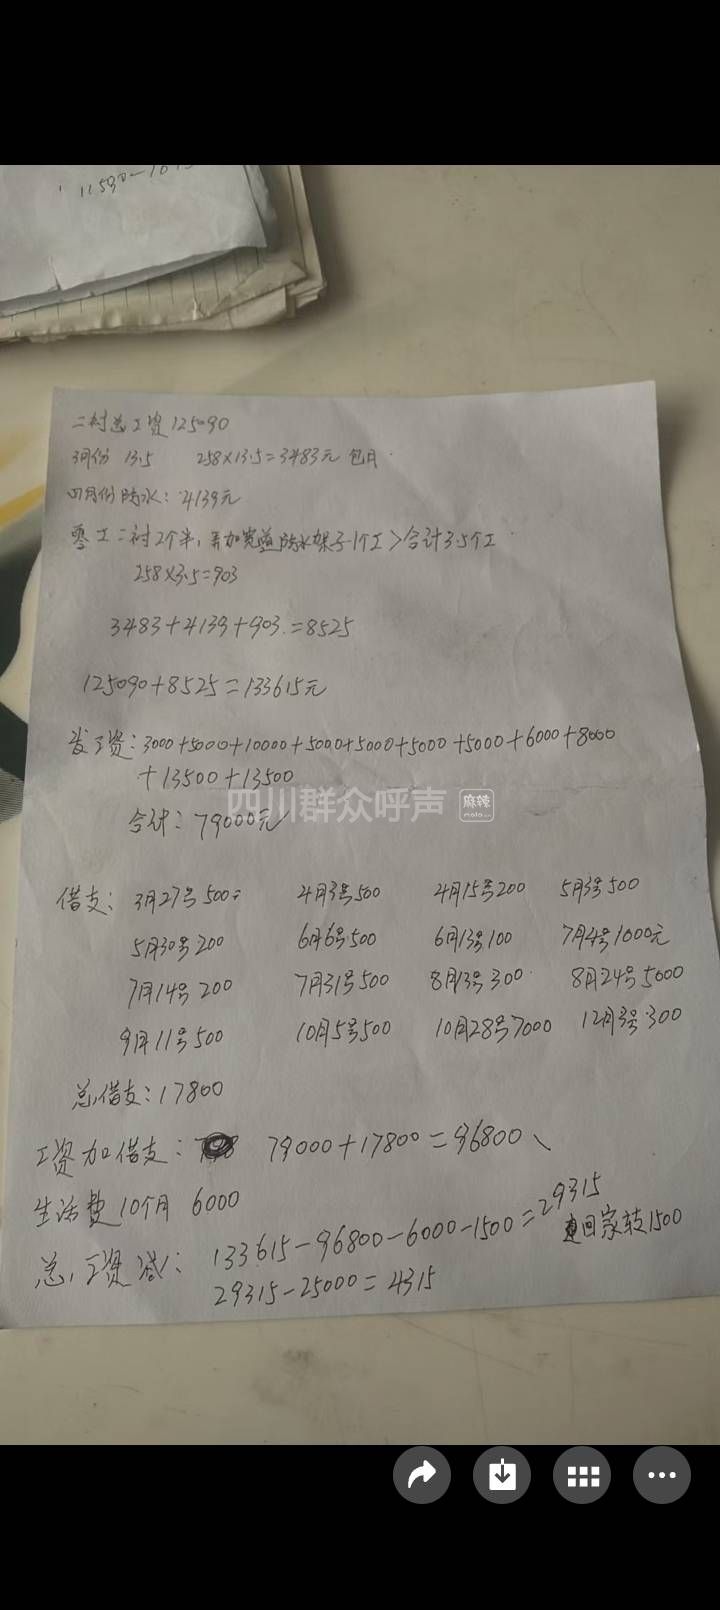 11590-
二衬总工资125090
3月份 13.5 258×13.5=3483元 包月
四月份防水：4139元
零工二衬2个半，弄加宽道防水架子1个工>合计3.5个工
258×3.5=903
3483+4139+903=8525
125090+8525=133615元
发工资：3000+5000+10000+5000+5000+5000+5000+6000+8000
+13500+13500
合计：79000元
四川群众呼声 麻辣
借支：3月27号500 4月3号500 4月15号200 5月3号500
5月30号200 6月6号500 6月13号100 7月4号1000元
7月14号200 7月31号500 8月13号300 8月24号5000
9月11号500 10月5号500 10月28号7000 12月3号300
总借支：17800
工资加借支： 79000+17800=96800
生活费10个月 6000
总工资减：133615-96800-6000-1500=29315
回家转1500
29315-25000=4315